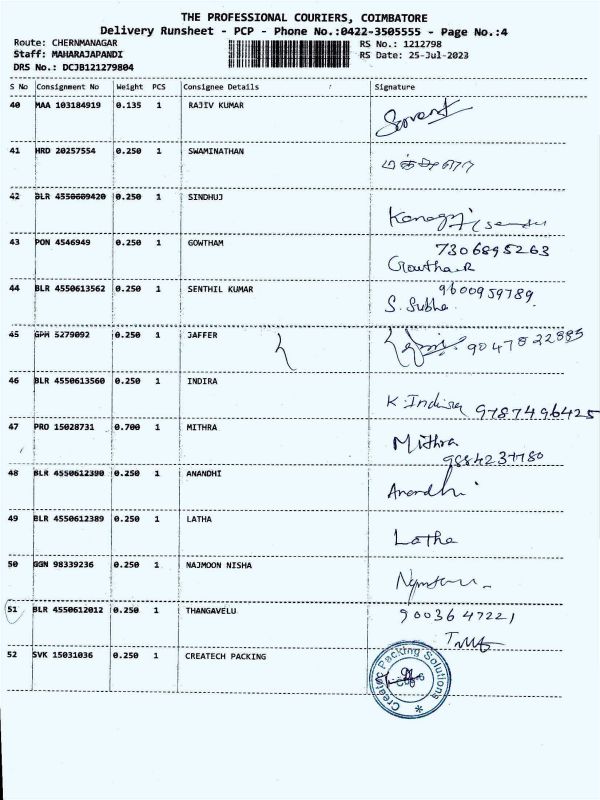 THE PROFESSIONAL COURIERS, COIMBATORE
Delivery Runsheet - PCP - Phone No.:0422-3505555 - Page No.:4
Route: CHERNMANAGAR RS No.: 1212798
Staff: MAHARAJAPANDI RS Date: 25-Jul-2023
DRS No.: DCJB121279804
S No Consignment No Weight PCS Consignee Details Signature
40 MAA 103184919 0.135 1 RAJIV KUMAR
41 HRD 20257554 0.250 1 SWAMINATHAN
42 BLR 4550609420 0.250 1 SINDHUJ
43 PON 4546949 0.250 1 GOWTHAM 7306895263
44 BLR 4550613562 0.250 1 SENTHIL KUMAR 9600959789
S. Subha
45 GPH 5279092 0.250 1 JAFFER 9047822885
46 BLR 4550613560 0.250 1 INDIRA
K. Indira 9787496425
47 PRO 15028731 0.700 1 MITHRA
Mithra
48 BLR 4550612390 0.250 1 ANANDHI
Anandhi
49 BLR 4550612389 0.250 1 LATHA
Latha
50 GGN 98339236 0.250 1 NAJMOON NISHA
51 BLR 4550612012 0.250 1 THANGAVELU 9003647221
52 SVK 15031036 0.250 1 CREATECH PACKING
Packing Solutions